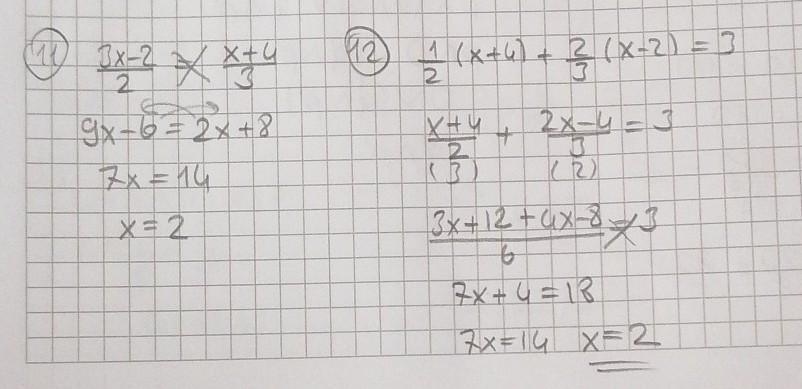 11 (3x-2)/2 = (x+4)/3
9x-6=2x+8
7x=14
x=2
12 1/2 (x+4) + 2/3 (x-2) = 3
(x+4)/2 + (2x-4)/3 = 3
(3) (2)
(3x+12+4x-8)/6 = 3
7x+4=18
7x=14 x=2